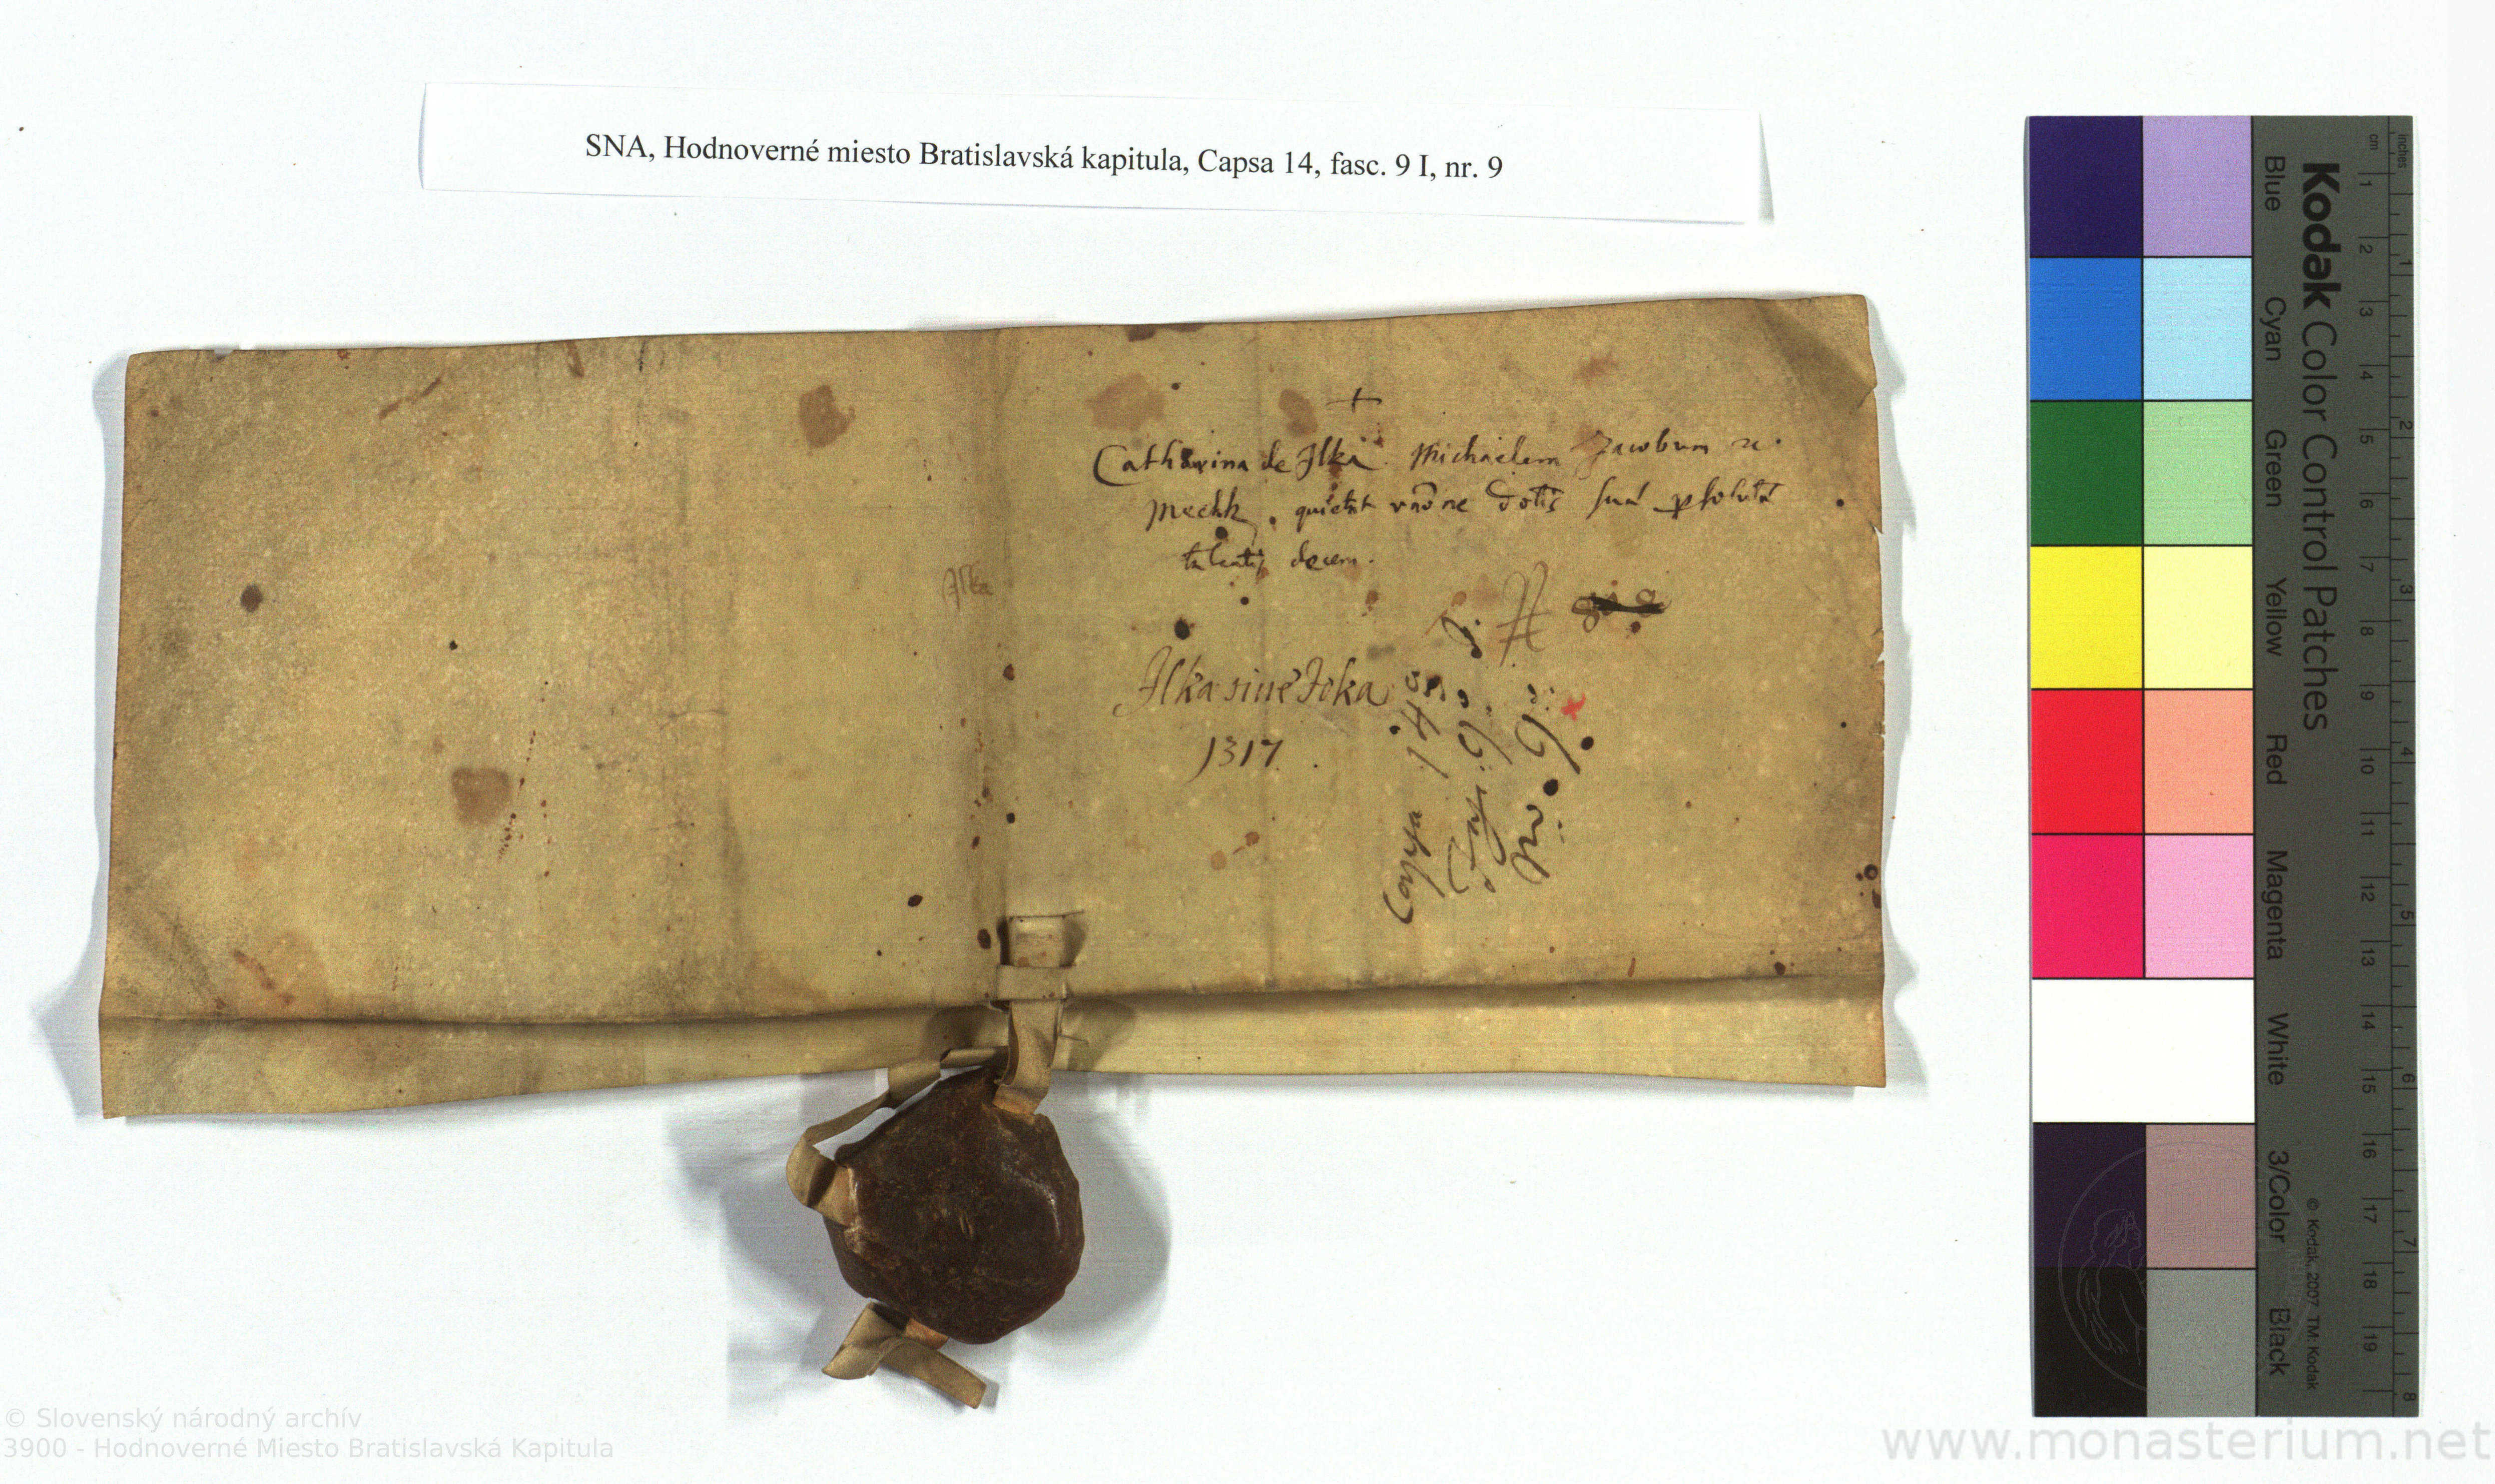 SNA, Hodnoverné miesto Bratislavská kapitula, Capsa 14, fasc. 9 I, nr. 9
Catharina de Ilka. Michaelem Jacobum
quietat dotis sua psoluta
decem.
Ilka
Ilka siue Ioka
1317.
Capsa 14
Fasc. 9
Nro. 9
Kodak Color Control Patches
Blue Cyan Green Yellow Red Magenta White 3/Color Black
cm 1 2 3 4 5 6 7 8 9 10 11 12 13 14 15 16 17 18 19
inches 1 2 3 4 5 6 7 8
© Kodak, 2007 TM: Kodak
© Slovenský národný archív
3900 - Hodnoverné Miesto Bratislavská Kapitula
www.monasterium.net